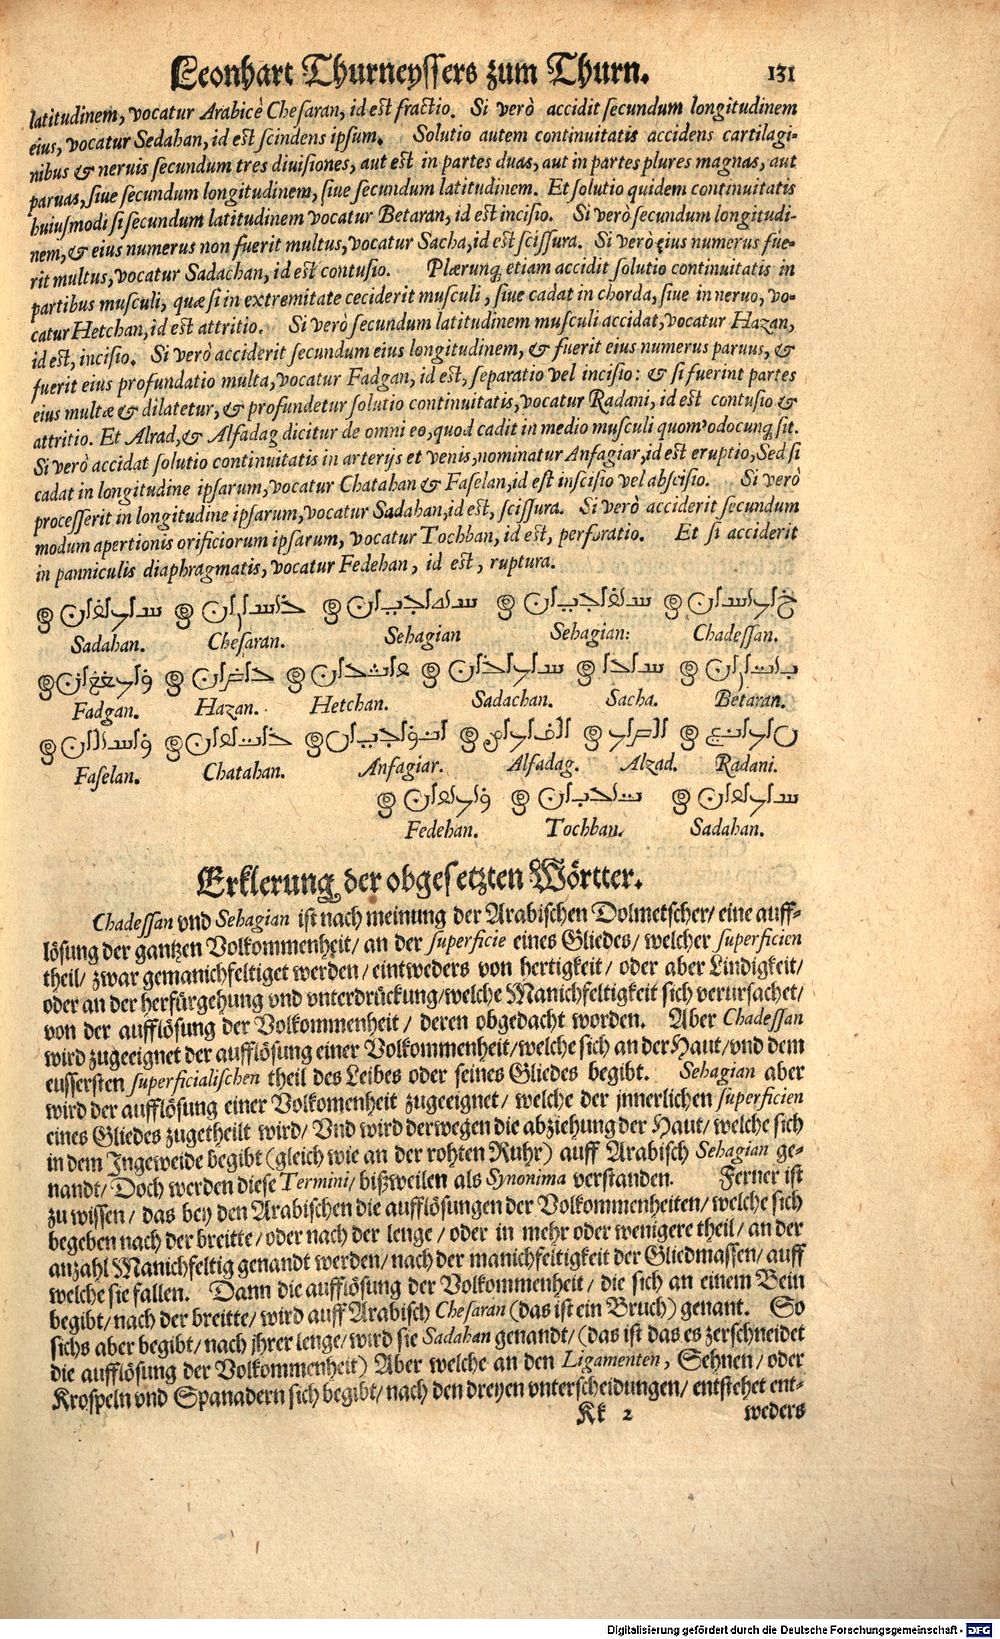 Leonhart Thurneyssers zum Thurn. 131
latitudinem, vocatur Arabicè Chesaran, id est fractio. Si verò accidit secundum longitudinem
eius, vocatur Sedahan, id est scindens ipsum. Solutio autem continuitatis accidens cartilagi-
nibus & neruis secundum tres diuisiones, aut est in partes duas, aut in partes plures magnas, aut
paruas, siue secundum longitudinem, siue secundum latitudinem. Et solutio quidem continuitatis
huiusmodi si secundum latitudinem vocatur Betaran, id est incisio. Si verò secundum longitudi-
nem, & eius numerus non fuerit multus, vocatur Sacha, id est scissura. Si verò eius numerus fue-
rit multus, vocatur Sadachan, id est contusio. Plærunq; etiam accidit solutio continuitatis in
partibus musculi, quæ si in extremitate ceciderit musculi, siue cadat in chorda, siue in neruo, vo-
catur Hetchan, id est attritio. Si verò secundum latitudinem musculi accidat, vocatur Hazan,
id est, incisio. Si verò acciderit secundum eius longitudinem, & fuerit eius numerus paruus, &
fuerit eius profundatio multa, vocatur Fadgan, id est, separatio vel incisio: & si fuerint partes
eius multæ & dilatetur, & profundetur solutio continuitatis, vocatur Radani, id est contusio &
attritio. Et Alrad, & Alfadag dicitur de omni eo, quod cadit in medio musculi quomodocunq; sit.
Si verò accidat solutio continuitatis in arterijs et venis, nominatur Anfagiar, id est eruptio, Sed si
cadat in longitudine ipsarum, vocatur Chatahan & Faselan, id est inscisio vel abscisio. Si verò
processerit in longitudine ipsarum, vocatur Sadahan, id est, scissura. Si verò acciderit secundum
modum apertionis orificiorum ipsarum, vocatur Tochban, id est, perforatio. Et si acciderit
in panniculis diaphragmatis, vocatur Fedehan, id est, ruptura.
Sadahan. Chesaran. Sehagian Sehagian: Chadessan.
Fadgan. Hazan. Hetchan. Sadachan. Sacha. Betaran.
Faselan. Chatahan. Anfagiar. Alfadag. Alzad. Radani.
Fedehan. Tochban. Sadahan.
Erklerung der obgesetzten Wörtter.
Chadessan vnd Sehagian ist nach meinung der Arabischen Dolmetscher/ eine auff-
lösung der gantzen Volkommenheit/ an der superficie eines Gliedes/ welcher superficien
theil/ zwar gemanichfeltiget werden/ eintweders von hertigkeit/ oder aber Lindigkeit/
oder an der herfürgehung vnd vnterdrückung/ welche Manichfeltigkeit sich verursachet/
von der aufflösung der Volkommenheit/ deren obgedacht worden. Aber Chadessan
wird zugeeignet der aufflösung einer Volkommenheit/ welche sich an der Haut/ vnd dem
eussersten superficialischen theil des Leibes oder seines Gliedes begibt. Sehagian aber
wird der aufflösung einer Volkomenheit zugeeignet/ welche der jnnerlichen superficien
eines Gliedes zugetheilt wird/ Vnd wird derwegen die abziehung der Haut/ welche sich
in dem Ingeweide begibt (gleich wie an der rohten Ruhr) auff Arabisch Sehagian ge-
nandt/ Doch werden diese Termini/ bißweilen als Synonima verstanden. Ferner ist
zu wissen/ das bey den Arabischen die aufflösungen der Volkommenheiten/ welche sich
begeben nach der breitte/ oder nach der lenge/ oder in mehr oder wenigere theil/ an der
anzahl Manichfeltig genandt werden/ nach der manichfeltigkeit der Gliedmassen/ auff
welche sie fallen. Dann die aufflösung der Volkommenheit/ die sich an einem Bein
begibt/ nach der breitte/ wird auff Arabisch Chesaran (das ist ein Bruch) genant. So
sichs aber begibt/ nach jhrer lenge/ wird sie Sadahan genandt/ (das ist das es zerschneidet
die aufflösung der Volkommenheit) Aber welche an den Ligamenten, Sehnen/ oder
Krospeln vnd Spanadern sich begibt/ nach den dreyen vnterscheidungen/ entstehet ent-
Kk 2 weders
Digitalisierung gefördert durch die Deutsche Forschungsgemeinschaft - DFG